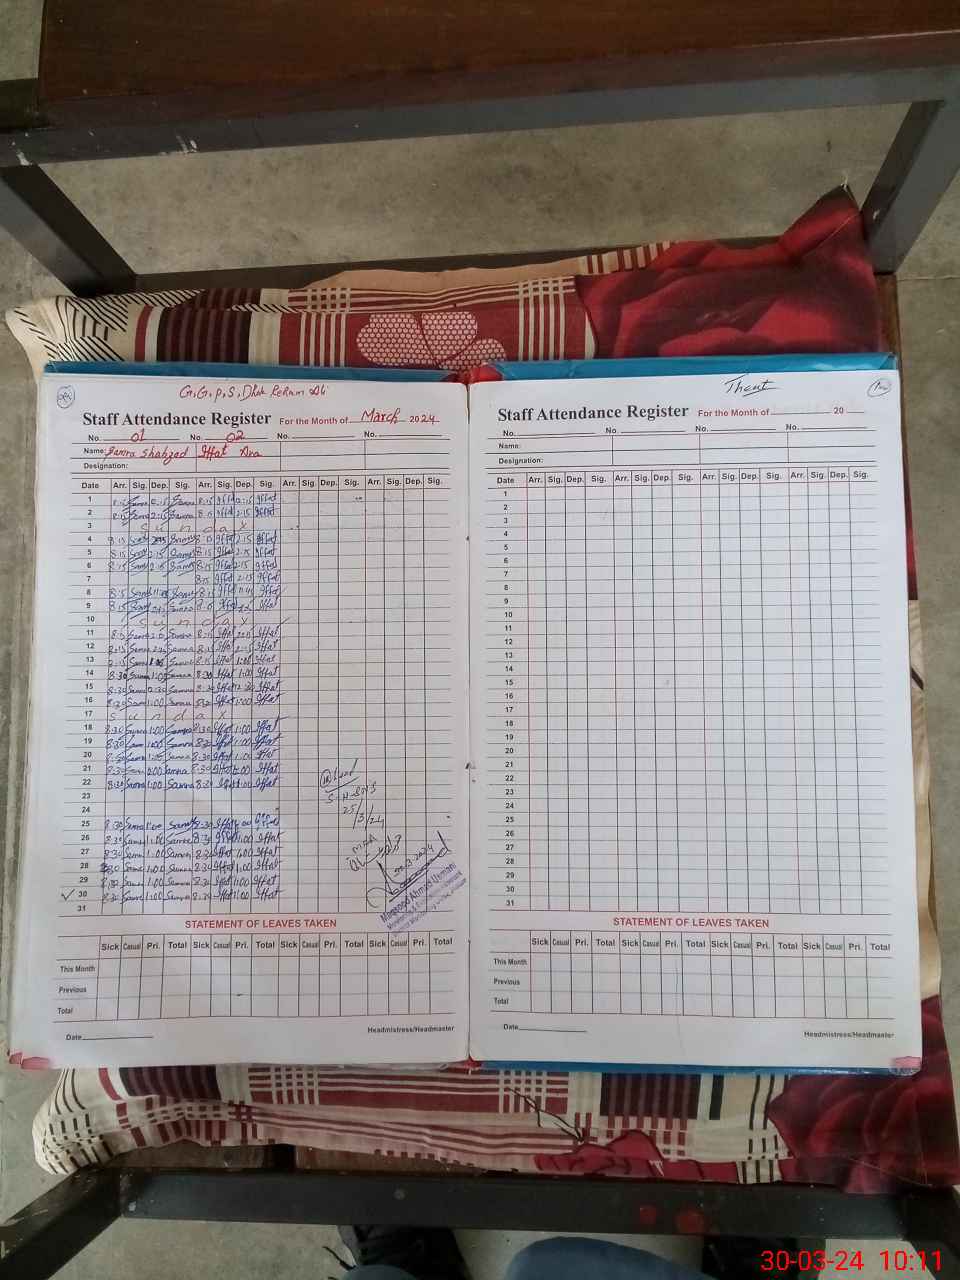 G.G.P.S, Dhok
Staff Attendance Register For the Month of March 2024
No. 01 No. 02 No. No.
Name: Samra Shahzad Iffat Ara
Designation:
Date Arr. Sig. Dep. Sig. Arr. Sig. Dep. Sig. Arr. Sig. Dep. Sig. Arr. Sig. Dep. Sig.
1 8:15 Samra 2:15 Samra 8:15 Iffat 2:15 Iffat
2 8:15 Samra 2:15 Samra 8:15 Iffat 2:15 Iffat
3 Sunday
4 8:15 2:15 8:15 Iffat 2:15 Iffat
5 8:15 2:15 Samra 8:15 Iffat 2:15 Iffat
6 8:15 2:15 Samra 8:15 Iffat 2:15 Iffat
7 8:15 Iffat 2:15 Iffat
8 Samra Iffat Iffat
9 8:15 Samra Iffat Iffat
10 Sunday
11 Samra Samra 8:15 Iffat Iffat
12 8:15 Samra Samra 8:15 Iffat 2:15 Iffat
13 Samra Samra 8:15 Iffat 1:00 Iffat
14 8:30 Samra 1:00 Samra 8:30 Iffat 1:00 Iffat
15 8:30 Samra 12:30 Samra 8:30 Iffat 12:30 Iffat
16 8:30 Samra 1:00 Samra 8:30 Iffat 1:00 Iffat
17 Sunday
18 8:30 Samra 1:00 Samra 8:30 Iffat 1:00 Iffat
19 8:30 Samra 1:00 Samra 8:30 Iffat 1:00 Iffat
20 8:30 Samra 1:00 Samra 8:30 Iffat 1:00 Iffat
21 8:30 Samra 1:00 Samra 8:30 Iffat 1:00 Iffat
22 8:30 Samra 1:00 Samra 8:30 Iffat 1:00 Iffat
23
24
25 8:30 Samra 1:00 Samra 8:30 Iffat 1:00 Iffat
26 8:30 Samra 1:00 Samra 8:30 Iffat 1:00 Iffat
27 8:30 Samra 1:00 Samra 8:30 Iffat 1:00 Iffat
28 8:30 Samra 1:00 Samra 8:30 Iffat 1:00 Iffat
29 8:30 Samra 1:00 Samra 8:30 Iffat 1:00 Iffat
30 8:30 Samra 1:00 Samra 8:30 Iffat 1:00 Iffat
31
25/3/24
MEA
30-03-2024
Maqsood Ahmad Usmani
STATEMENT OF LEAVES TAKEN
Sick Casual Pri. Total Sick Casual Pri. Total Sick Casual Pri. Total Sick Casual Pri. Total
This Month
Previous
Total
Date
Headmistress/Headmaster
Staff Attendance Register For the Month of 20
No. No. No. No.
Name:
Designation:
Date Arr. Sig. Dep. Sig. Arr. Sig. Dep. Sig. Arr. Sig. Dep. Sig. Arr. Sig. Dep. Sig.
1
2
3
4
5
6
7
8
9
10
11
12
13
14
15
16
17
18
19
20
21
22
23
24
25
26
27
28
29
30
31
STATEMENT OF LEAVES TAKEN
Sick Casual Pri. Total Sick Casual Pri. Total Sick Casual Pri. Total Sick Casual Pri. Total
This Month
Previous
Total
Date
Headmistress/Headmaster
30-03-24 10:11